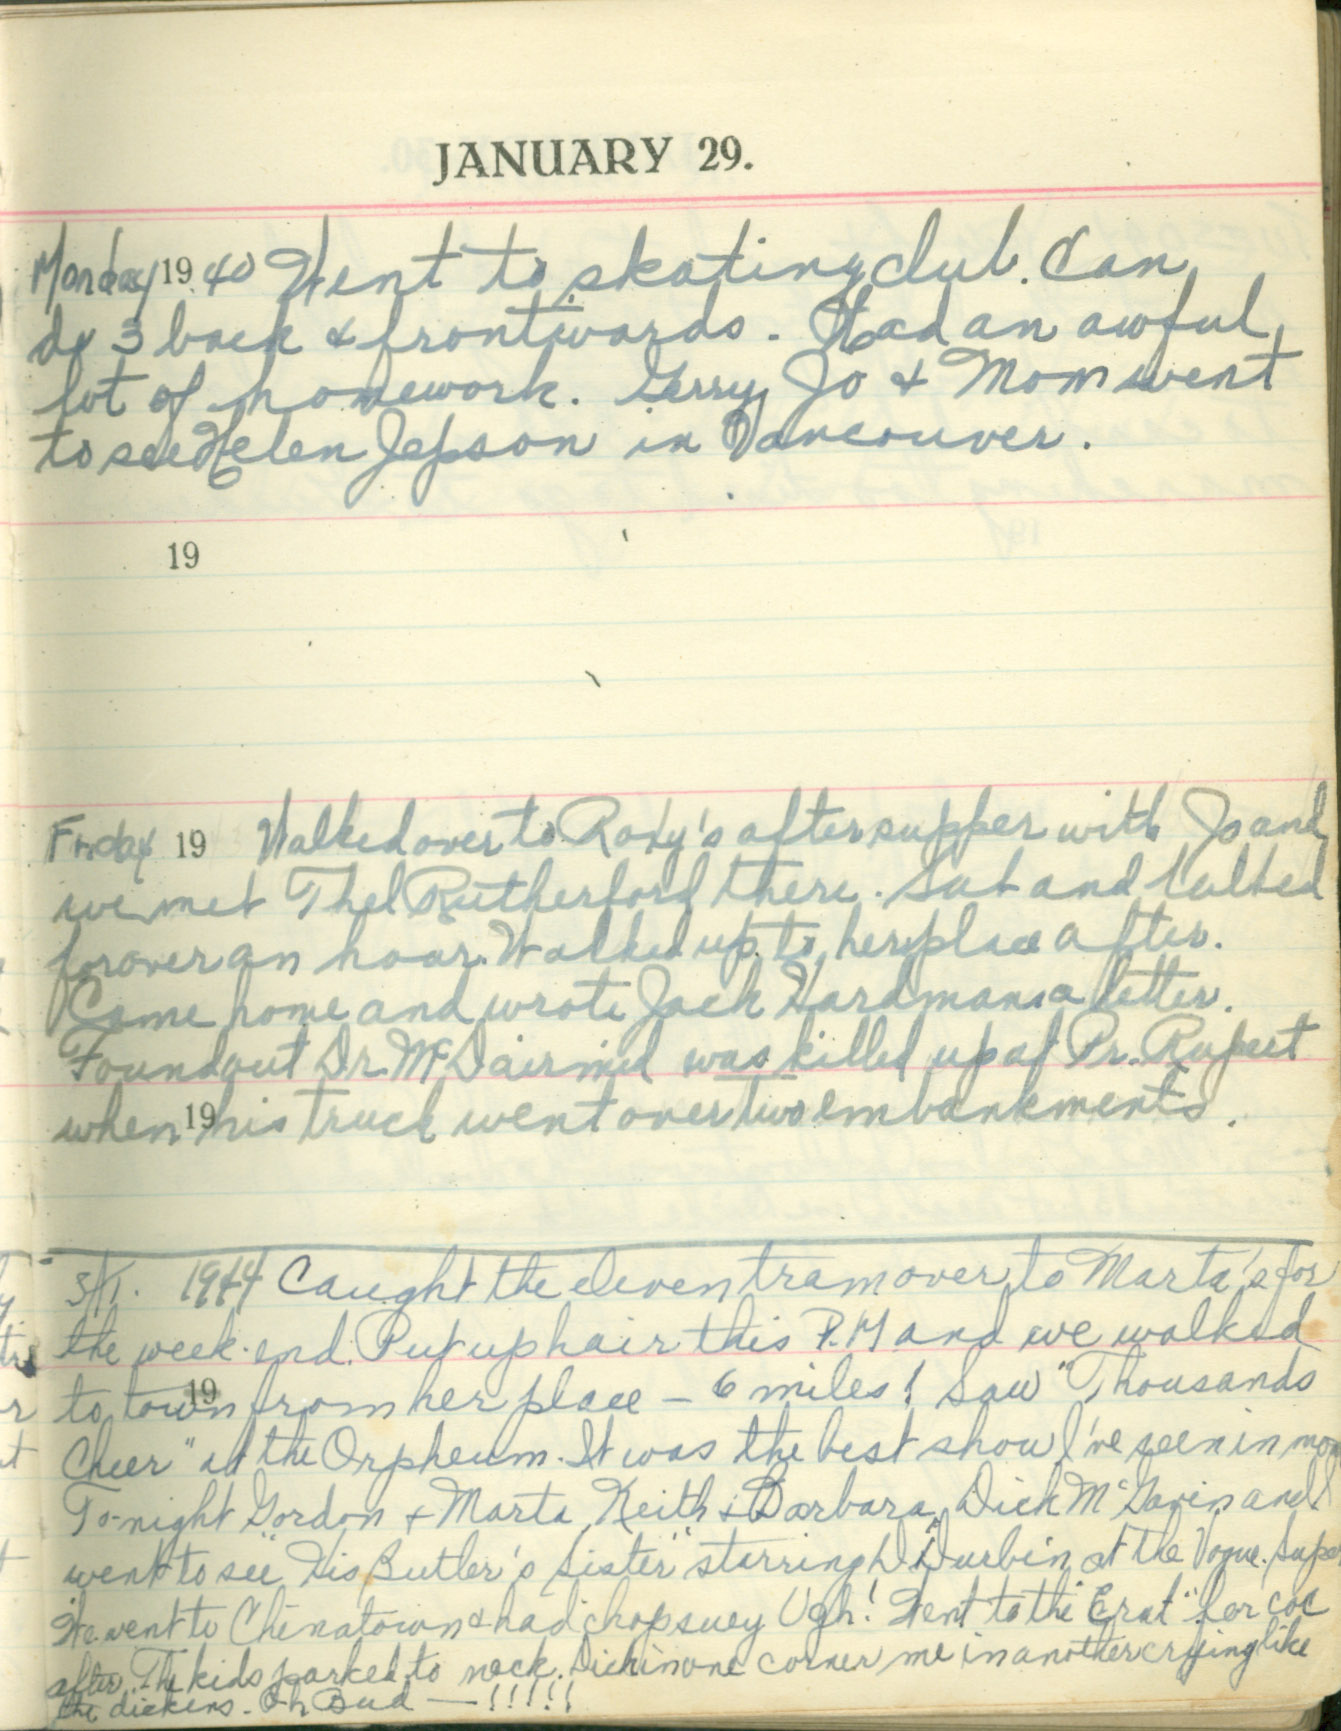 JANUARY 29.
Monday 1940 Went to skating club. Can
do 3 back & frontwards. Had an awful
lot of homework. Gerry, Jo & Mom went
to see Helen Jepson in Vancouver.
19
Friday 19 Walked over to Roxy's after supper with Jo and
we met Thel Rutherford there. Sat and talked
for over an hour. Walked up to her place after.
Came home and wrote Jack Hardman a letter.
Found out Dr. McDairmid was killed up at Pr. Rupert
when his truck went over two embankments.
19
SAT. 1944 Caught the eleven tram over to Marta's for
the week-end. Put up hair this P.M and we walked
to town from her place - 6 miles! Saw "Thousands
19
Cheer" at the Orpheum. It was the best show I've seen in
To-night Gordon & Marta, Keith & Barbara, Dick McGavin and I
went to see "His Butler's Sister" starring D. Durbin at the Vogue.
We went to Chinatown & had chop suey Ugh! Went to the "Erat" for
after. The kids parked to neck. Dick in one corner me in another crying like
the dickens. Oh Bud — !!!!!